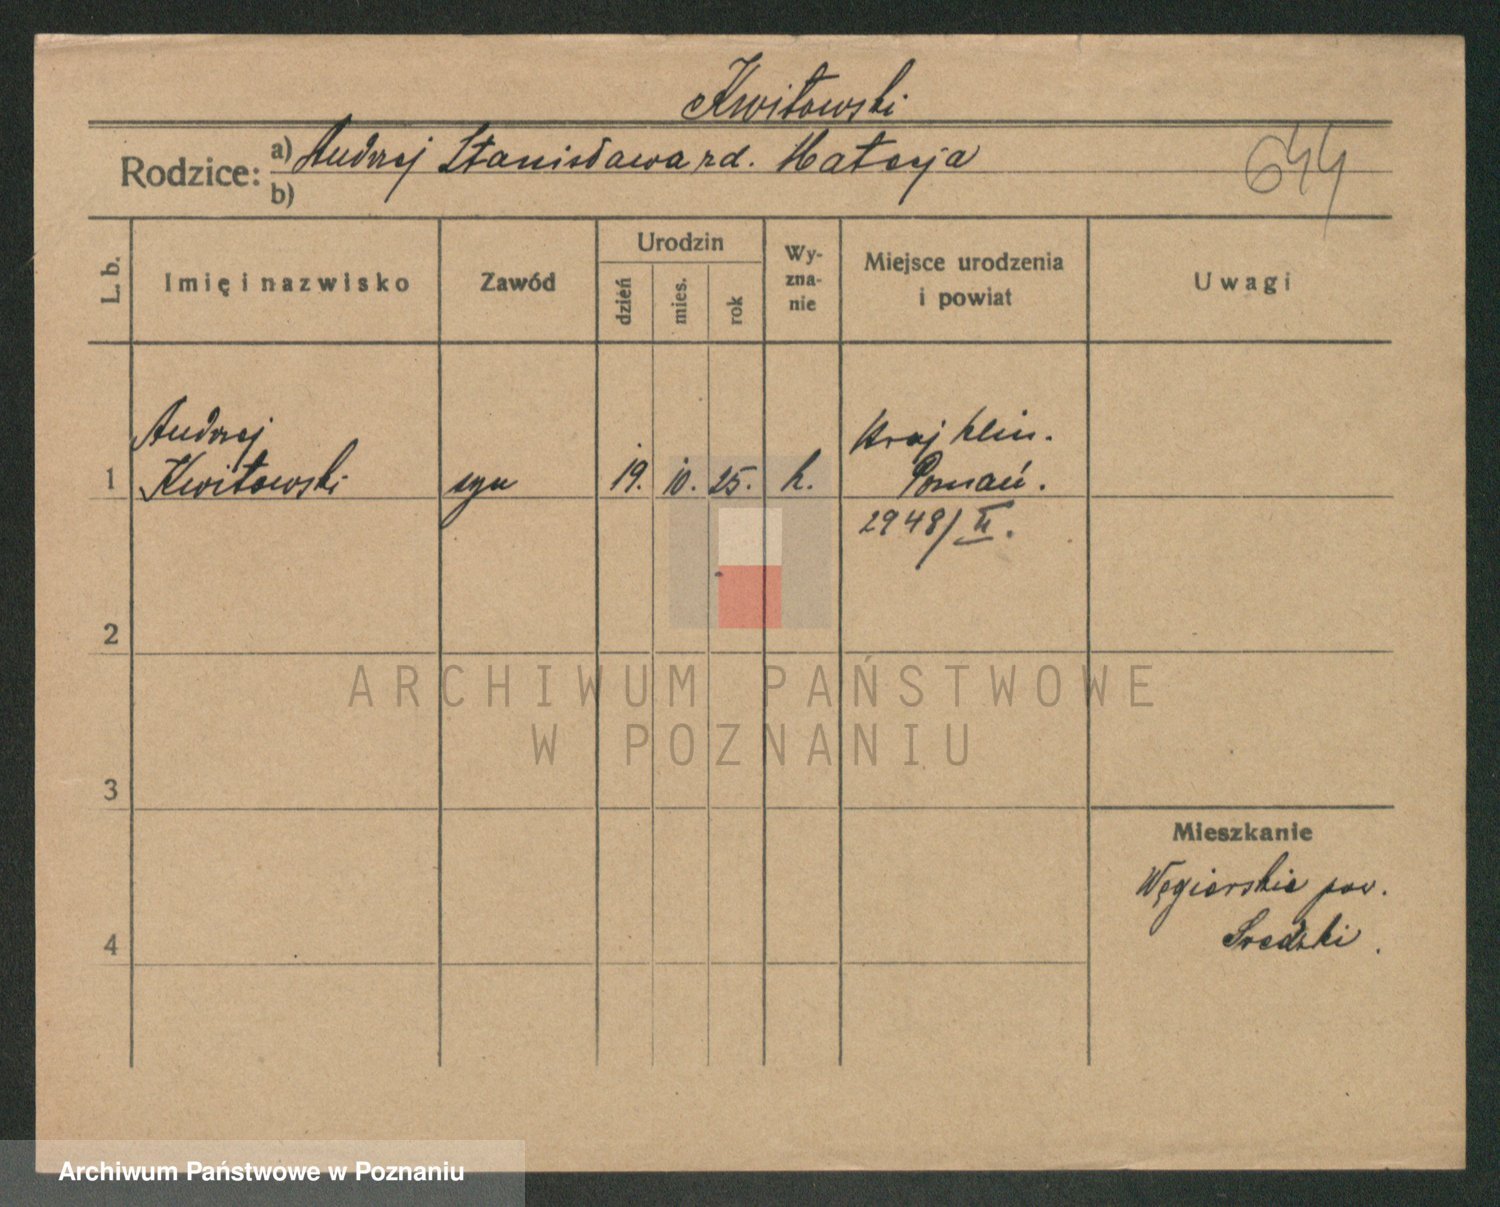 Kwitowski
Rodzice: a) Andrzej Stanisława rd. Matecja
b)
644
L. b.
Imię i nazwisko
Zawód
Urodzin
dzień
mies.
rok
Wy-
zna-
nie
Miejsce urodzenia
i powiat
Uwagi
Andrzej
1 Kwitowski syn 19. 10. 25. k. Kraj klin.
Poznań.
2948/II.
2
3
4
Mieszkanie
Węgierskie pow.
Sredzki.
ARCHIWUM PAŃSTWOWE
W POZNANIU
Archiwum Państwowe w Poznaniu